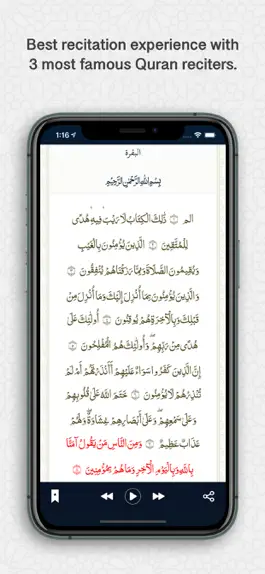 Best recitation experience with
3 most famous Quran reciters.
1:16
البقرة
بِسْمِ اللهِ الرَّحْمٰنِ الرَّحِيْمِ
الم ۝ ذَٰلِكَ الْكِتَابُ لَا رَيْبَ فِيهِ هُدًى
لِلْمُتَّقِينَ ۝ الَّذِينَ يُؤْمِنُونَ بِالْغَيْبِ
وَيُقِيمُونَ الصَّلَاةَ وَمِمَّا رَزَقْنَاهُمْ يُنْفِقُونَ ۝
وَالَّذِينَ يُؤْمِنُونَ بِمَا أُنْزِلَ إِلَيْكَ وَمَا أُنْزِلَ مِنْ
قَبْلِكَ وَبِالْآخِرَةِ هُمْ يُوقِنُونَ ۝ أُولَٰئِكَ عَلَىٰ
هُدًى مِنْ رَبِّهِمْ ۖ وَأُولَٰئِكَ هُمُ الْمُفْلِحُونَ ۝
إِنَّ الَّذِينَ كَفَرُوا سَوَاءٌ عَلَيْهِمْ أَأَنْذَرْتَهُمْ أَمْ لَمْ
تُنْذِرْهُمْ لَا يُؤْمِنُونَ ۝ خَتَمَ اللَّهُ عَلَىٰ قُلُوبِهِمْ
وَعَلَىٰ سَمْعِهِمْ ۖ وَعَلَىٰ أَبْصَارِهِمْ غِشَاوَةٌ ۖ وَلَهُمْ
عَذَابٌ عَظِيمٌ ۝ وَمِنَ النَّاسِ مَنْ يَقُولُ آمَنَّا
بِاللَّهِ وَبِالْيَوْمِ الْآخِرِ وَمَا هُمْ بِمُؤْمِنِينَ ۝